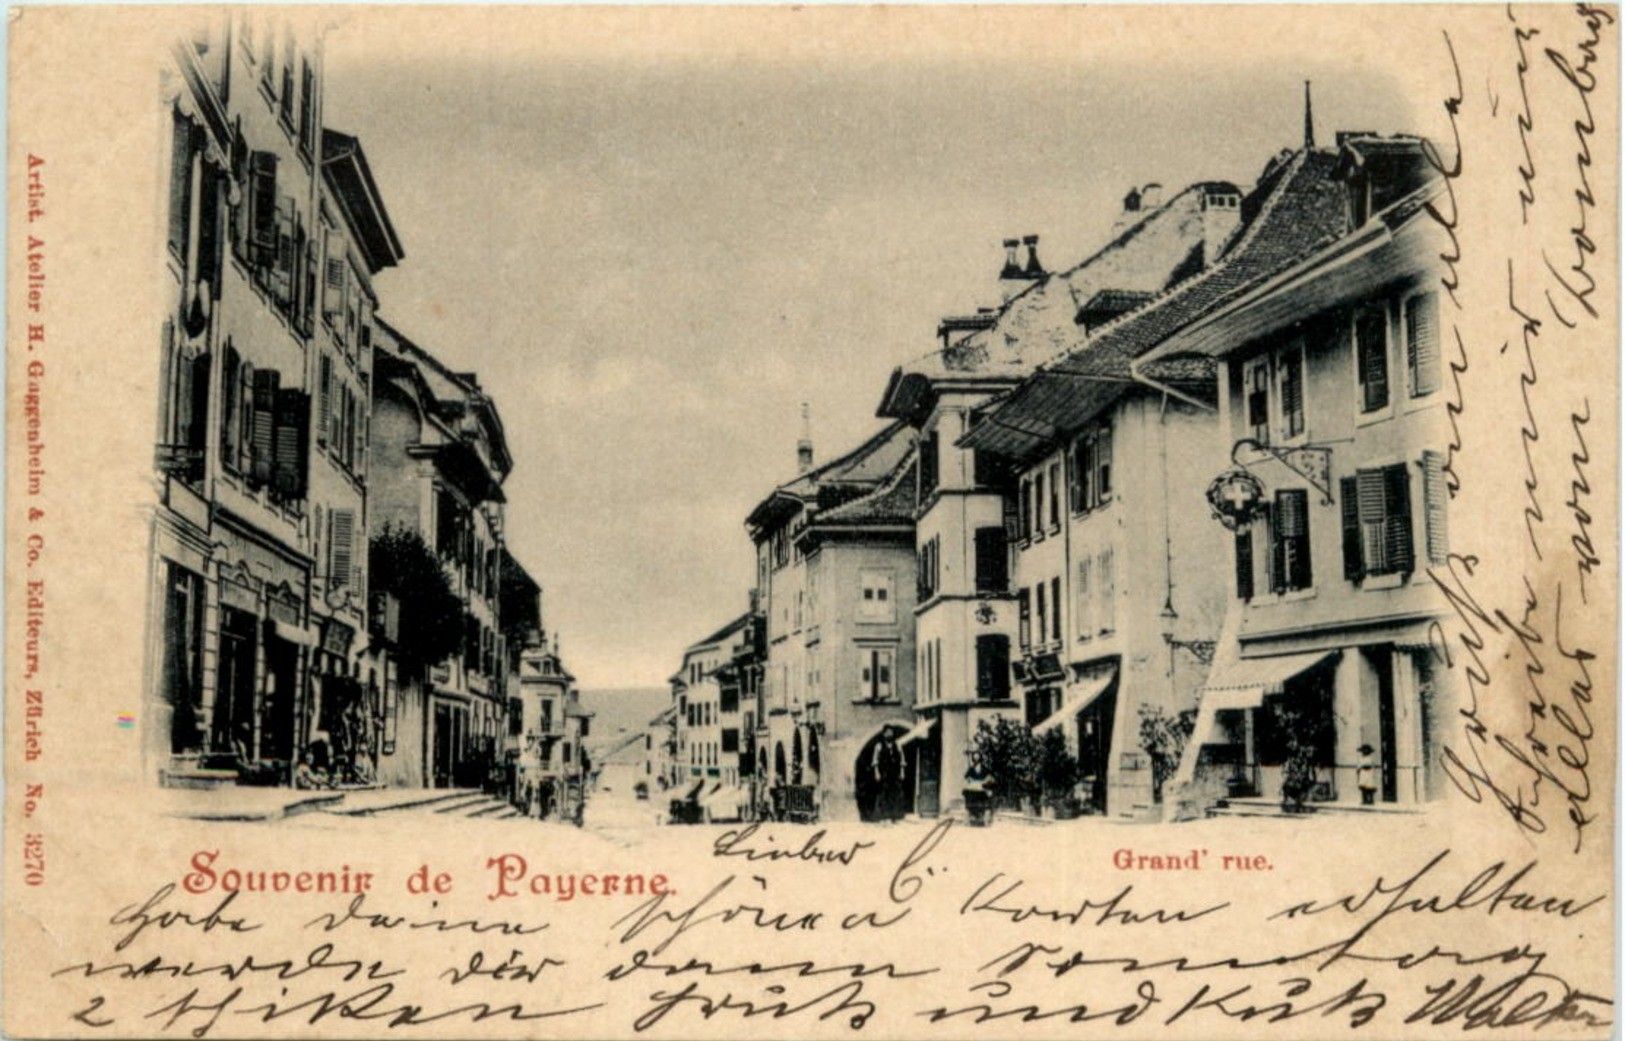 Artist. Atelier H. Guggenheim & Co. Editeurs, Zürich No. 3270
Souvenir de Payerne.
Grand' rue.
Lieber
Habe deine schönen Karten erhalten
werde dir dann Sonntag
2 schiken Gruß und Kuß Walter
Gruß von alle
schreibe mir nun
alles vom